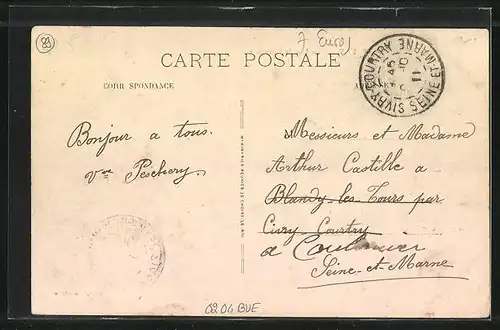 89
7 Euros
CARTE POSTALE
CORR SPONDANCE
SIVRY-COURTRY
SEINE-ET-MARNE
Bonjour a tous.
Vve Peschery.
Messieurs et Madame
Arthur Castille a
Blandy-les-Tours par
Civry-Courtry
a
Seine-et-Marne
0204 BUE